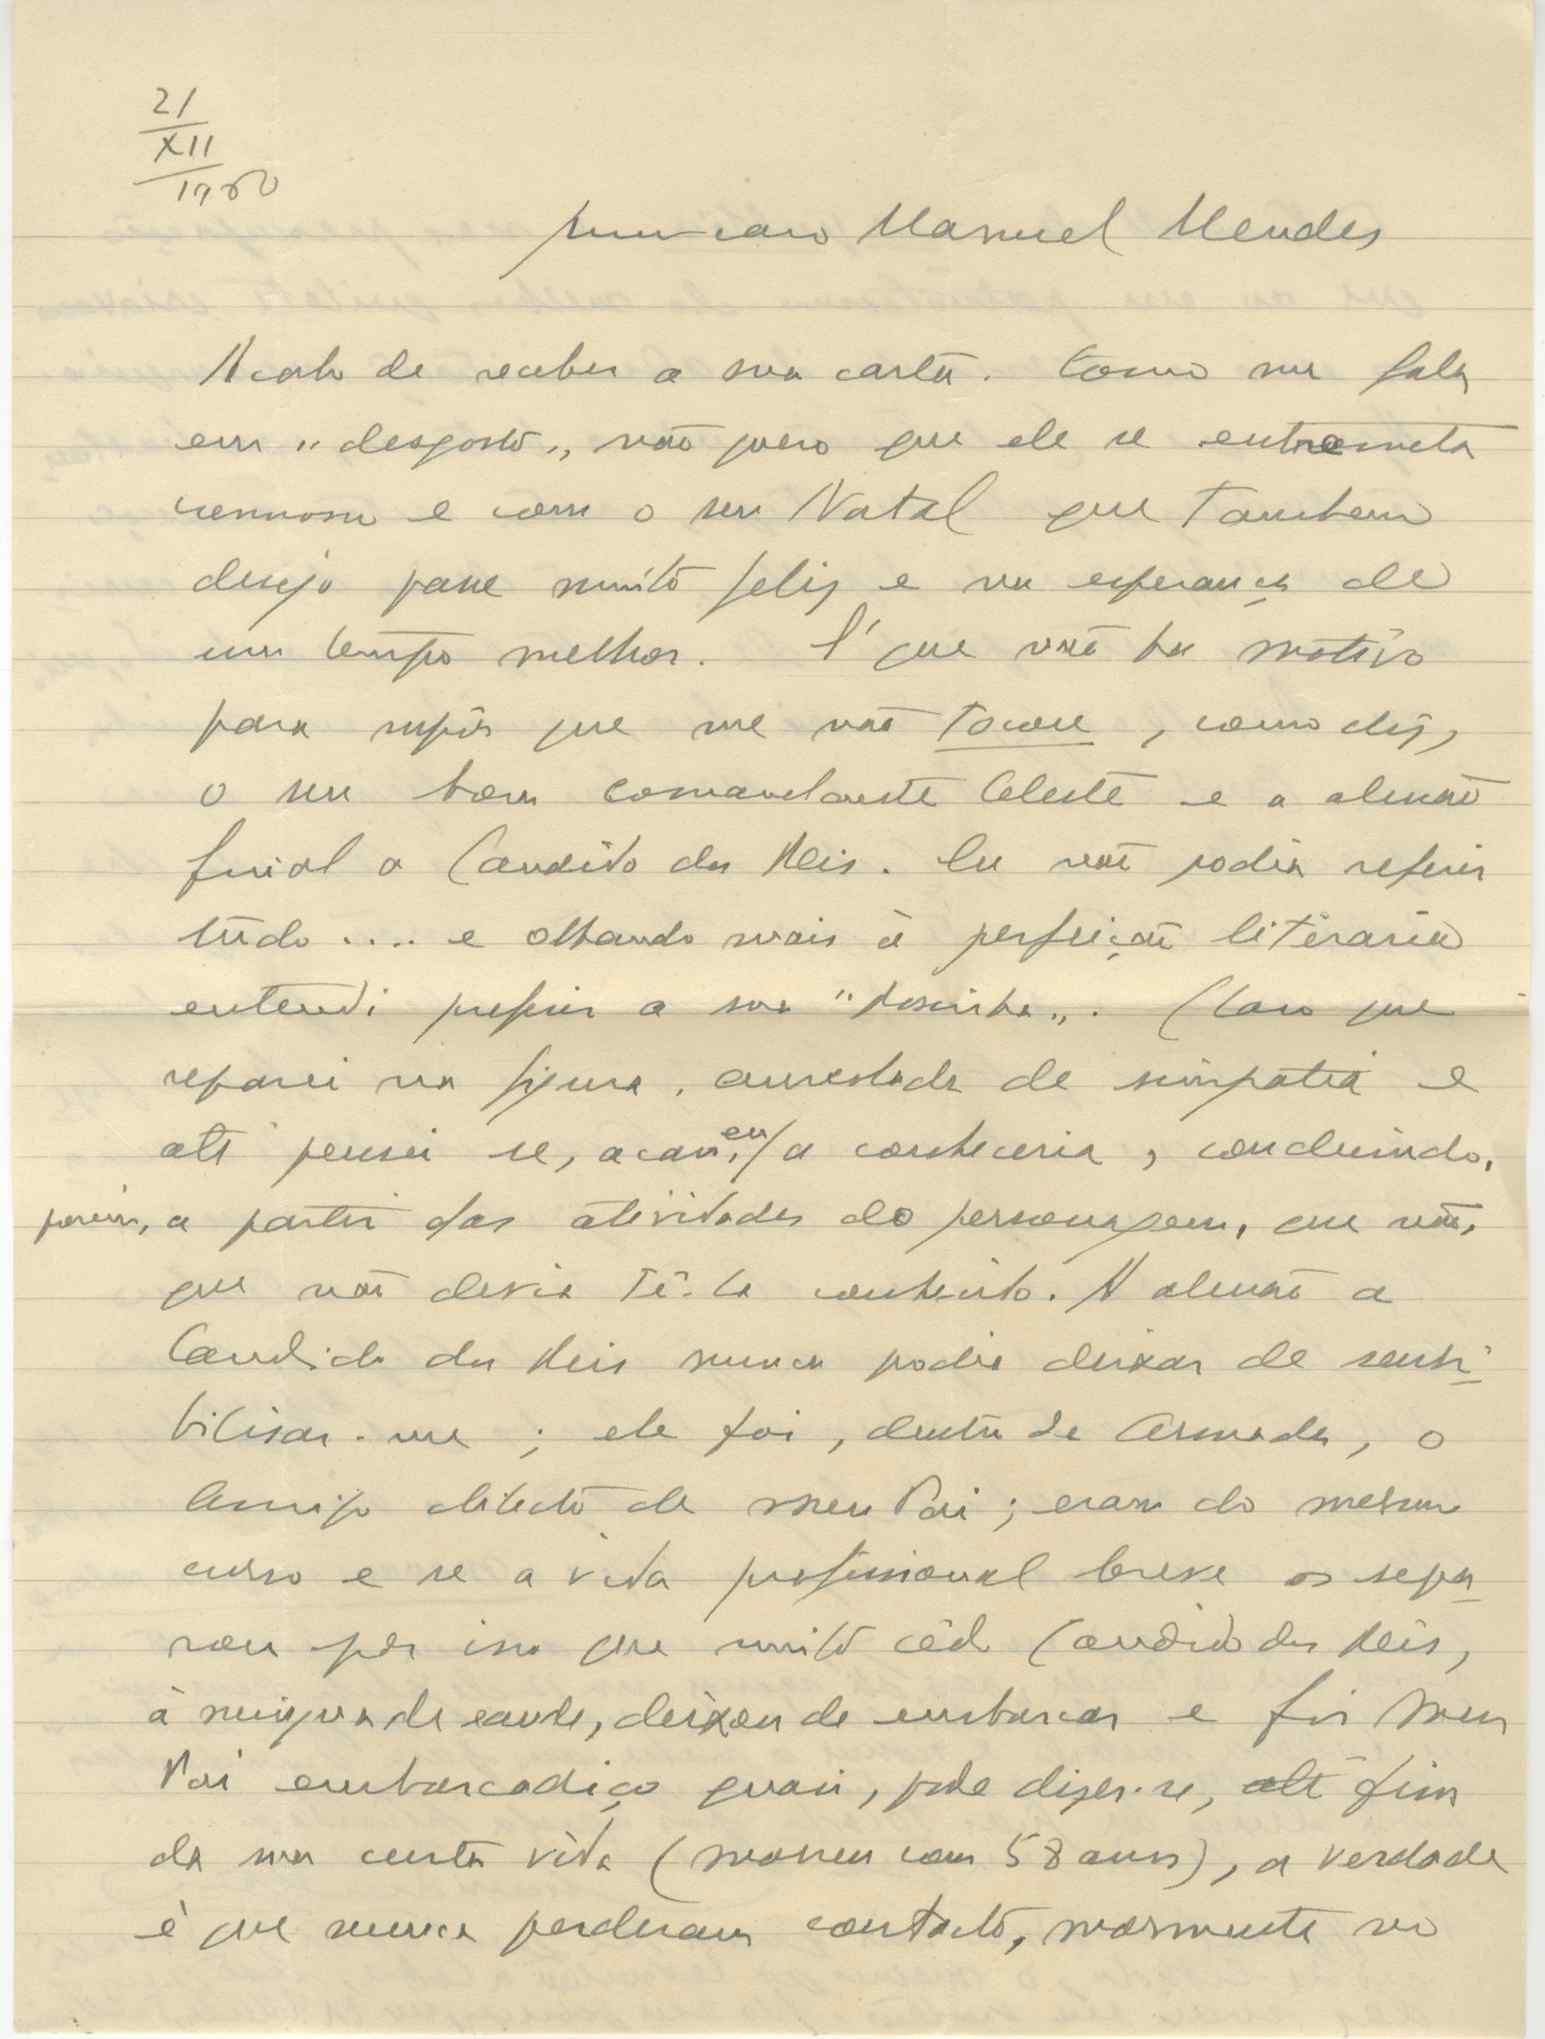 21
XII
1960
meu caro Manuel Mendes
Acabo de receber a sua carta. Como me fala
em "desgosto", não quero que ele se entremeta
connosco e com o seu Natal que tambem
desejo passe muito feliz e na esperança de
um tempo melhor. É que não ha motivo
para supôr que me não tocou, como diz,
o seu bom comandante Celeste e a alusão
final a Candido dos Reis. Eu não podia referir
tudo.... e olhando mais à perfeição literária
entendi preferir a sua "Rosinha". Claro que
reparei na figura, de simpatia e
até pensei se, acaso, eu a conheceria, concluindo,
porém, a partir das atividades do personagem, que não,
que não devia tê-la conhecido. A alusão a
Candido dos Reis nunca podia deixar de sensi-
bilisar-me; ele foi, dentro da Armada, o
Amigo dilecto de meu Pai; eram do mesmo
curso e se a vida profissional breve os sepa-
rou por isso que muito cêdo Candido dos Reis,
à mingua de saude, deixou de embarcar e foi meu
Pai embarcadiço quasi, pode dizer-se, até fim
da sua curta vida (morreu com 58 anos), a verdade
é que nunca perderam contacto, mormente no